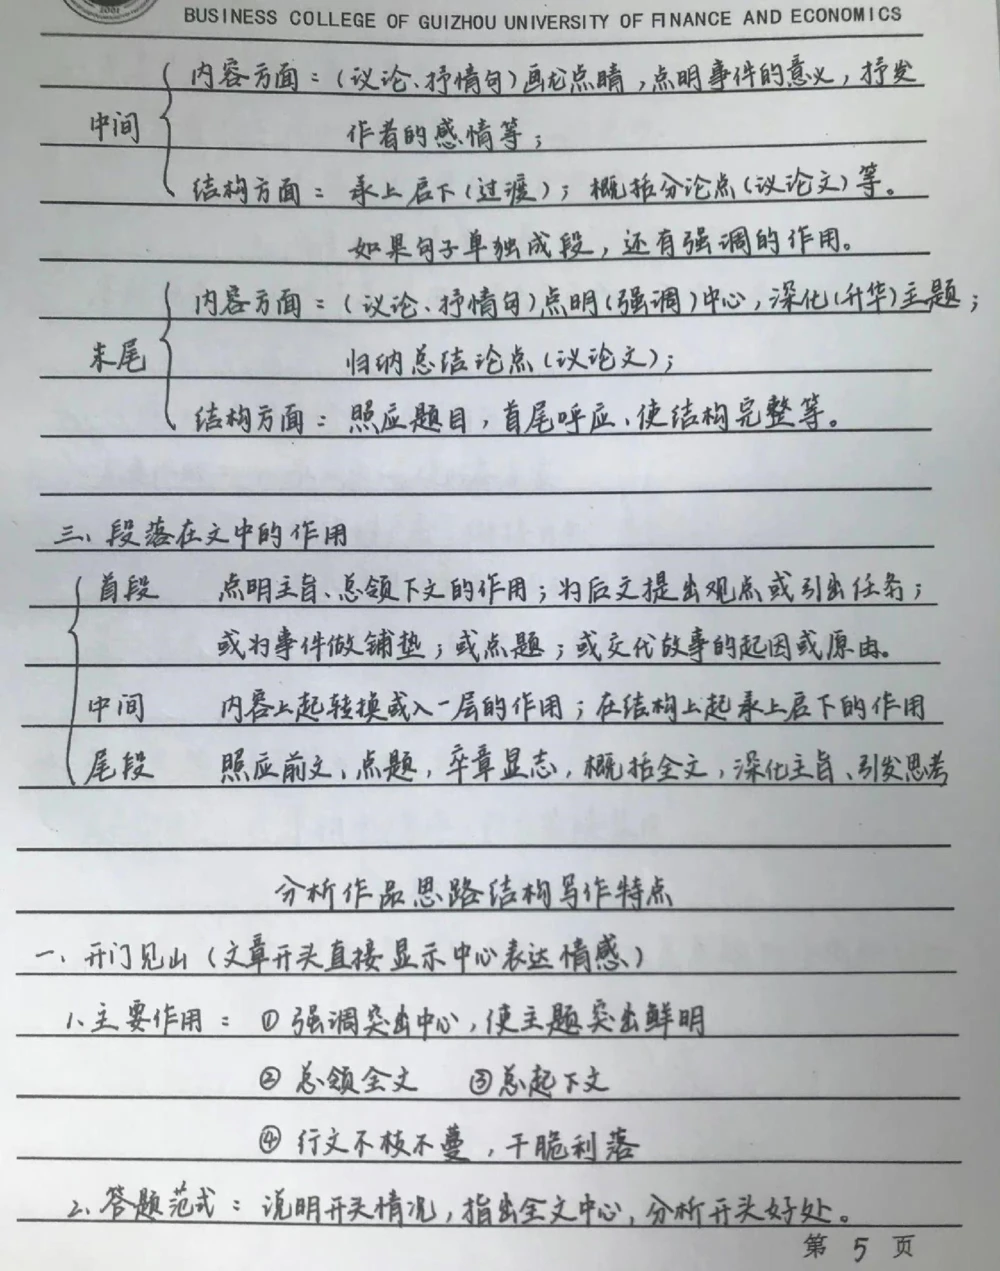 BUSINESS COLLEGE OF GUIZHOU UNIVERSITY OF FINANCE AND ECONOMICS
内容方面：（议论、抒情句）画龙点睛，点明事件的意义，抒发
中间
作者的感情等；
结构方面：承上启下（过渡）；概括分论点（议论文）等。
如果句子单独成段，还有强调的作用。
内容方面：（议论、抒情句）点明（强调）中心，深化（升华）主题；
末尾
归纳总结论点（议论文）；
结构方面：照应题目，首尾呼应、使结构完整等。
三、段落在文中的作用
首段 点明主旨、总领下文的作用；为后文提出观点或引出任务；
或为事件做铺垫；或点题；或交代故事的起因或原由。
中间 内容上起转换或入一层的作用；在结构上起承上启下的作用
尾段 照应前文、点题，卒章显志，概括全文，深化主旨、引发思考
分析作品思路结构写作特点
一、开门见山（文章开头直接显示中心表达情感）
1、主要作用：①强调突出中心，使主题突出鲜明
②总领全文 ③总起下文
④行文不枝不蔓，干脆利落
2、答题范式：说明开头情况，指出全文中心，分析开头好处。
第 5 页